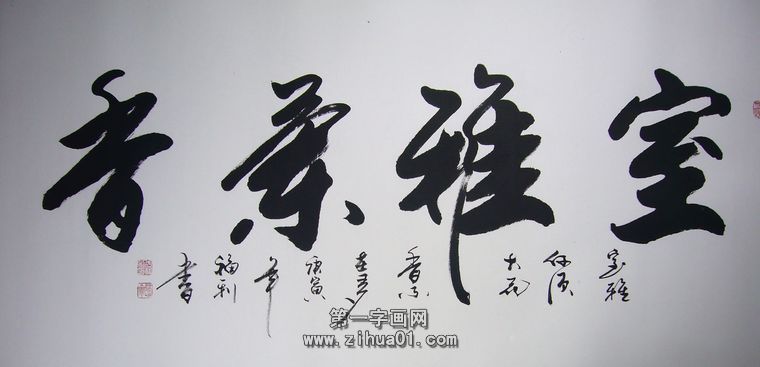 室雅蘭香
室雅
何須
大花
香不
在多
庚寅
年
福利
書
第一字画网
www.zihua01.com